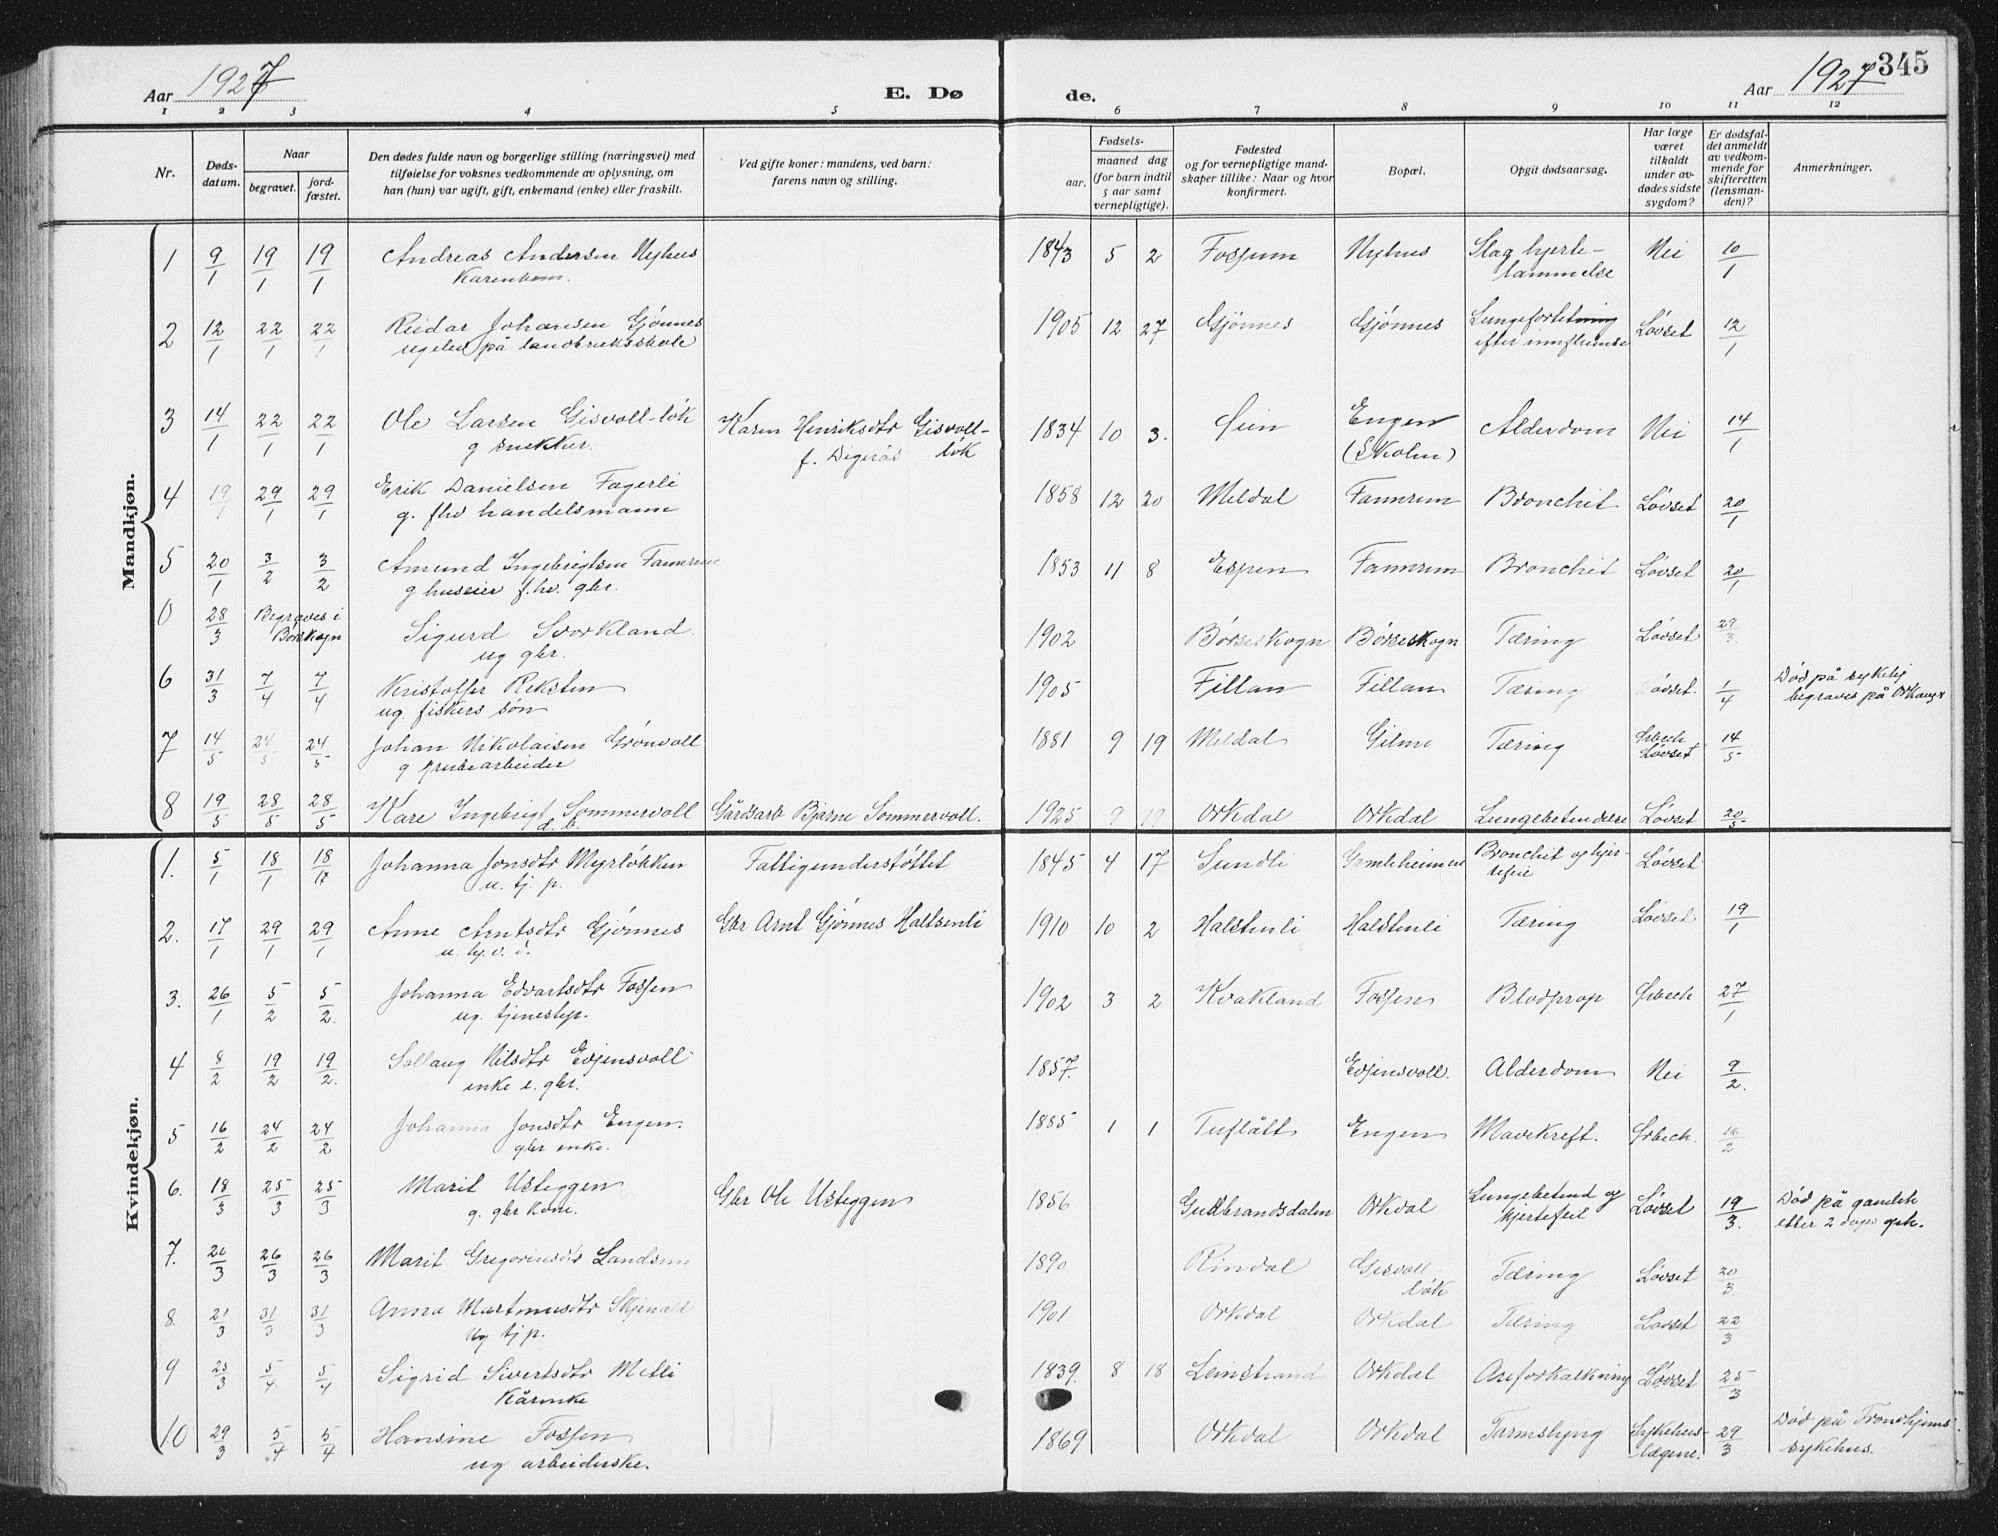 Aar 1927
E. Dø
de.
Aar 1927
345
1 2 3 4 5 6 7 8 9 10 11 12
Nr.
Døds-
datum.
Naar
begravet.
jord-
fæstet.
Den dødes fulde navn og borgerlige stilling (næringsvei) med
tilføielse for voksnes vedkommende av oplysning, om
han (hun) var ugift, gift, enkemand (enke) eller fraskilt.
Ved gifte koner: mandens, ved barn:
farens navn og stilling.
Fødsels-
aar.
maaned dag
(for barn indtil
5 aar samt
vernepligtige).
Fødested
og for vernepligtige mand-
skaper tillike: Naar og hvor
konfirmert.
Bopæl.
Opgit dødsaarsag.
Har læge
været
tilkaldt
under av-
dødes sidste
sygdom?
Er dødsfal-
det anmeldt
av vedkom-
mende for
skifteretten
(lensman-
den)?
Anmerkninger.
Mandkjøn.
1 9/1 19/1 19/1 Andreas Andersen Nyhus 1843 5 2 Fossum Nyhus Slag hjerte- Nei 10/1
Kårenkem. lammelse
2 12/1 22/1 22/1 Reidar Johansen Gjönnes 1905 12 27 Gjönnes Gjönnes Lungefortetning Løvset 12/1
ugelev på landbruksskole efter
3 14/1 22/1 22/1 Ole Larsen Gisvoll-lök Karen Henriksdtr Gisvoll- 1834 10 3. Øien Engen Alderdom Nei 14/1
g snekker. f. Digerås lök (Skolm)
4 19/1 29/1 29/1 Erik Danielsen Fagerli 1858 12 20 Meldal Fannrem Bronchit Løvset 20/1
g. fhv handelsmann
5 20/1 3/2 3/2 Amund Ingebrigtsen Fannrem 1853 11 8 Espen Fannrem Bronchit Løvset 20/1
g huseier f.hv. gbr.
0 28/3 Begraves i Sigurd Svorkland 1902 Børseskogn Børseskogn Tæring Løvset 29/3
Børskogn ug gbr.
6 31/3 7/4 7/4 Kristoffer Reksten 1905 Fillan Fillan Tæring Løvset. 1/4 Død på sykehj
ug. fiskers søn begraves på Orkanger
7 14/5 24/5 24/5 Johan Nikolaisen Grönvoll 1881 9 19 Meldal Gilme Tæring Grbech Løvset 14/5
g grubearbeider
8 19/5 28/5 28/5 Kåre Ingebrigt Sommervoll Gårdsarb Bjarne Sommervoll. 1925 9 19 Orkdal Orkdal Lungebetendelse Løvset 20/5
d.b.
Kvindekjøn.
1. 5/1 18/1 18/17 Johanna Jonsdtr Myrløkken Fattigunderstøttet 1845 4 17 Sundli Gamleheimen Bronchit og hjer- Løvset
u. tj. p. tefeil
2. 17/1 29/1 29/1 Anne Arntsdtr Gjønnes Gbr Arnt Gjønnes Haltsenli 1910 10 2 Halstenli Halstenli Tæring Løvset 19/1
u. hj.v. d.
3. 26/1 5/2 5/2. Johanna Edvartsdtr Fossen 1902 3 2 Kvakland Fossen Blodprop Grbech 27/1
ug. tjenestep.
4 8/2 19/2 19/2. Sollaug Nilsdtr Evjensvoll 1857. Evjensvoll. Alderdom Nei 9/2.
enke e. gbr.
5 16/2 24/2 24/2 Johanna Jonsdtr Engen. 1885 1 1 Tuflått Engen Mavekreft. Grbech. 16/2
gbr enke.
6. 18/3 25/3 25/3 Marit Usteggen Gbr Ole Usteggen 1856 Gudbrandsdalen Orkdal Lungebetend og Løvset 19/3. Død på gamleh
g. gbr kone. hjertefeil etter 2 dages oph.
7. 20/3 26/3 26/3 Marit Gregoriusdtr Landsem 1890 Rindal Gisvoll- Tæring Løvset 20/3.
løk
8. 21/3 31/3 31/3 Anna Martinusdtr Skjenald 1901 Orkdal Orkdal Tæring Løvset 22/3
ug tj p.
9 23/3 5/4. 5/4 Sigrid Sivertsdtr Metli 1839. 8 18 Leinstrand Orkdal Areforkalkning Løvset 25/3
Kårenke
10 29/3 5/4 5/4 Hansine Fossen 1869 Orkdal Orkdal Tarmslyng Sykehus- 29/3 Død på Trondhjems
ug arbeiderske. lægene. sykehus.